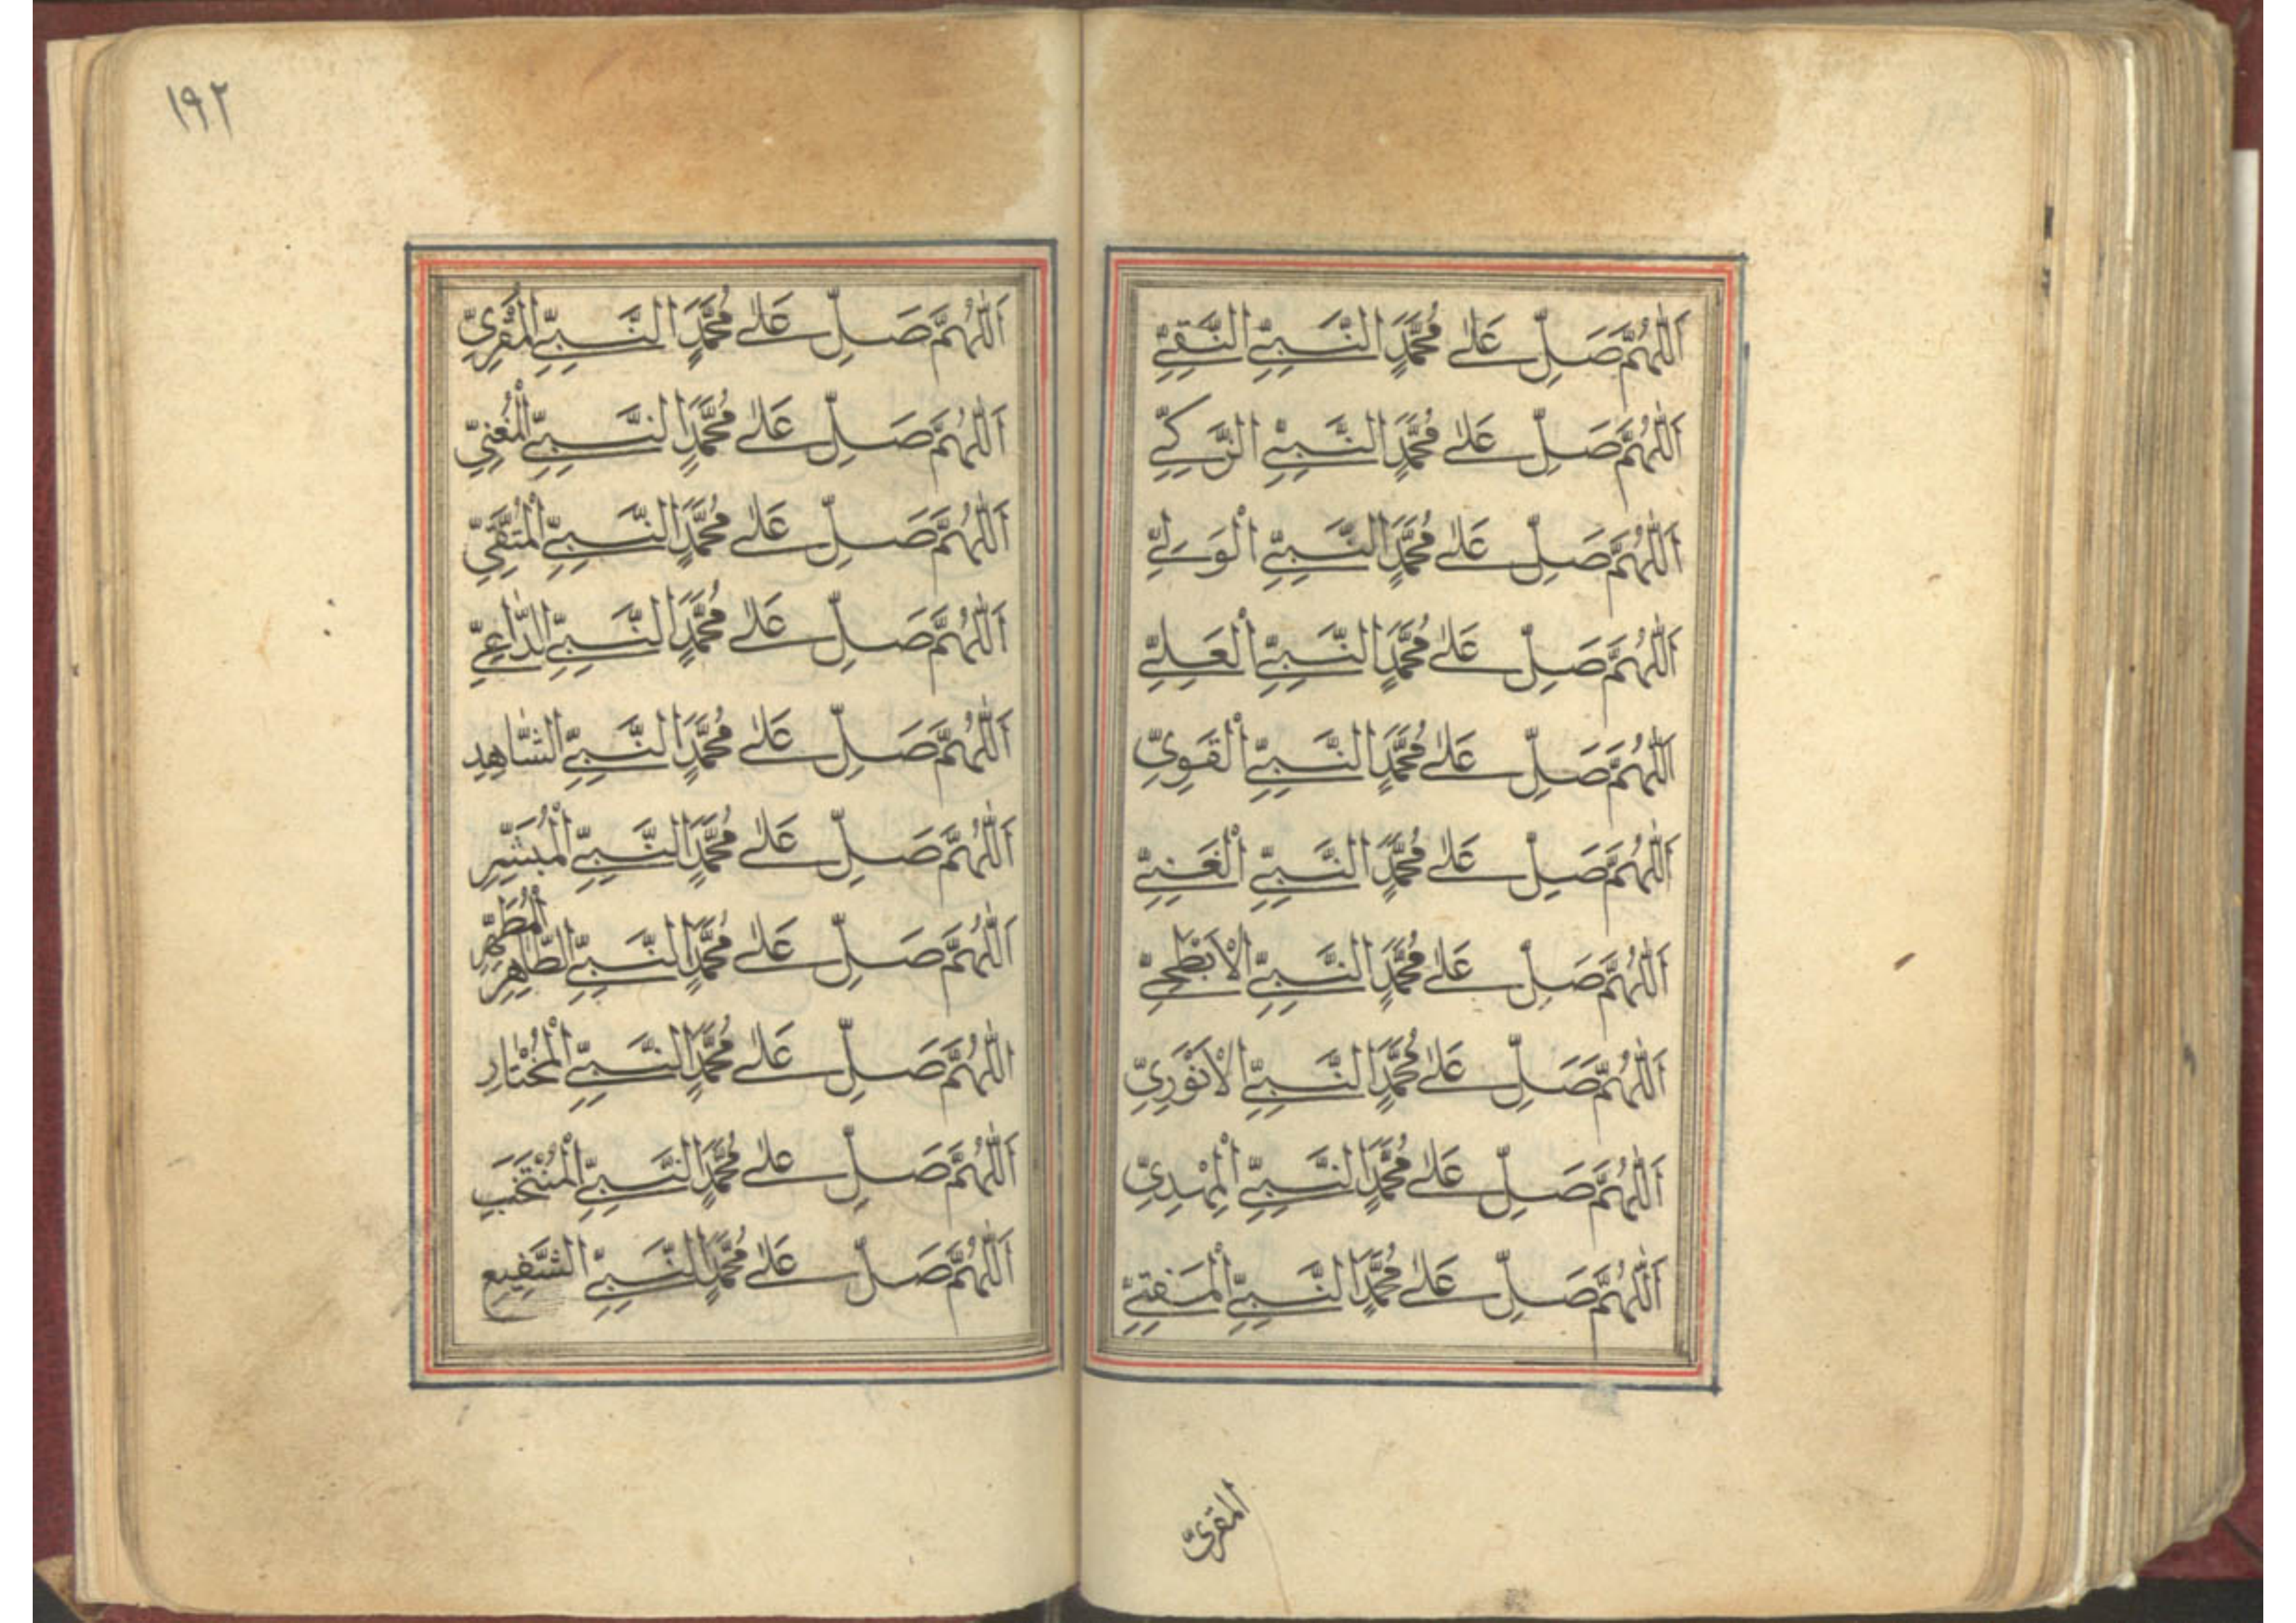 اَللّٰهُمَّ صَلِّ عَلٰى مُحَمَّدٍ النَّبِىِّ النَّقِىِّ
اَللّٰهُمَّ صَلِّ عَلٰى مُحَمَّدٍ النَّبِىِّ الزَّكِىِّ
اَللّٰهُمَّ صَلِّ عَلٰى مُحَمَّدٍ النَّبِىِّ الْوَلِىِّ
اَللّٰهُمَّ صَلِّ عَلٰى مُحَمَّدٍ النَّبِىِّ الْعَلِىِّ
اَللّٰهُمَّ صَلِّ عَلٰى مُحَمَّدٍ النَّبِىِّ الْقَوِىِّ
اَللّٰهُمَّ صَلِّ عَلٰى مُحَمَّدٍ النَّبِىِّ الْغَنِىِّ
اَللّٰهُمَّ صَلِّ عَلٰى مُحَمَّدٍ النَّبِىِّ الْاَبْطَحِىِّ
اَللّٰهُمَّ صَلِّ عَلٰى مُحَمَّدٍ النَّبِىِّ الْاَنْوَرِىِّ
اَللّٰهُمَّ صَلِّ عَلٰى مُحَمَّدٍ النَّبِىِّ الْمَهْدِىِّ
اَللّٰهُمَّ صَلِّ عَلٰى مُحَمَّدٍ النَّبِىِّ الْمَفتِىِّ
المقرىّ
١٩٢
اَللّٰهُمَّ صَلِّ عَلٰى مُحَمَّدٍ النَّبِىِّ الْمُقْرِىِّ
اَللّٰهُمَّ صَلِّ عَلٰى مُحَمَّدٍ النَّبِىِّ الْمُغْنِىِّ
اَللّٰهُمَّ صَلِّ عَلٰى مُحَمَّدٍ النَّبِىِّ الْمُتَّقِىِّ
اَللّٰهُمَّ صَلِّ عَلٰى مُحَمَّدٍ النَّبِىِّ الدَّاعِىِّ
اَللّٰهُمَّ صَلِّ عَلٰى مُحَمَّدٍ النَّبِىِّ الشَّاهِدِ
اَللّٰهُمَّ صَلِّ عَلٰى مُحَمَّدٍ النَّبِىِّ الْمُبَشِّرِ
اَللّٰهُمَّ صَلِّ عَلٰى مُحَمَّدٍ النَّبِىِّ الطَّاهِرِ الْمُطَهَّرِ
اَللّٰهُمَّ صَلِّ عَلٰى مُحَمَّدٍ النَّبِىِّ الْمُخْتَارِ
اَللّٰهُمَّ صَلِّ عَلٰى مُحَمَّدٍ النَّبِىِّ الْمُنْتَخَبِ
اَللّٰهُمَّ صَلِّ عَلٰى مُحَمَّدٍ النَّبِىِّ الشَّفِيعِ